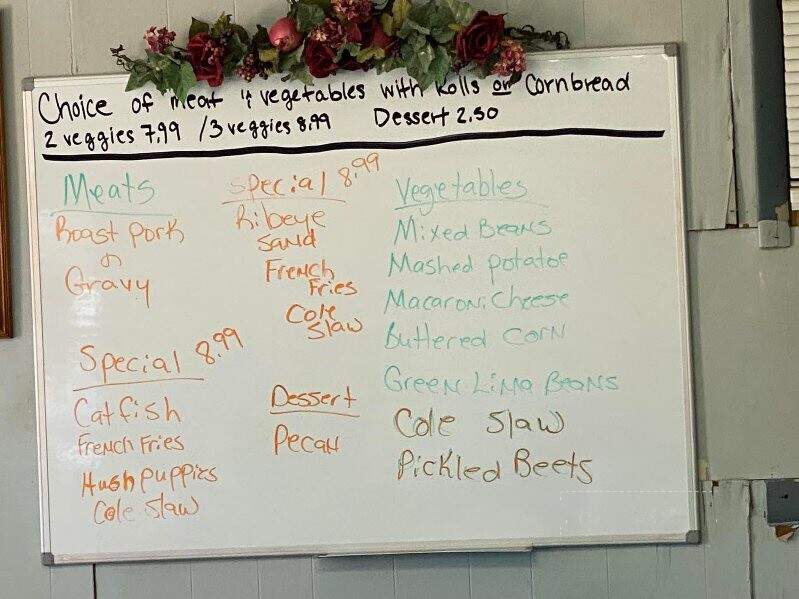 Choice of meat & vegetables with Rolls or Cornbread
2 veggies 7.99 / 3 veggies 8.99 Dessert 2.50
Meats
Roast Pork
n
Gravy
Special 8.99
Catfish
French Fries
Hush puppies
Cole Slaw
Special 8.99
Ribeye
Sand
French
Fries
Cole
Slaw
Dessert
Pecan
Vegetables
Mixed Beans
Mashed potatoe
Macaroni Cheese
Buttered Corn
Green Lima Beans
Cole Slaw
Pickled Beets